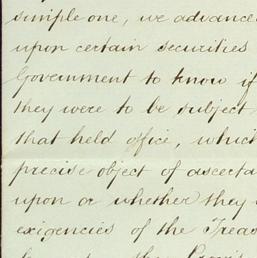 simple one, we advance
upon certain securities
Government to know if
they were to be subject
that held office, which
precise object of ascerta
upon or whether they
exigencies of the Treas